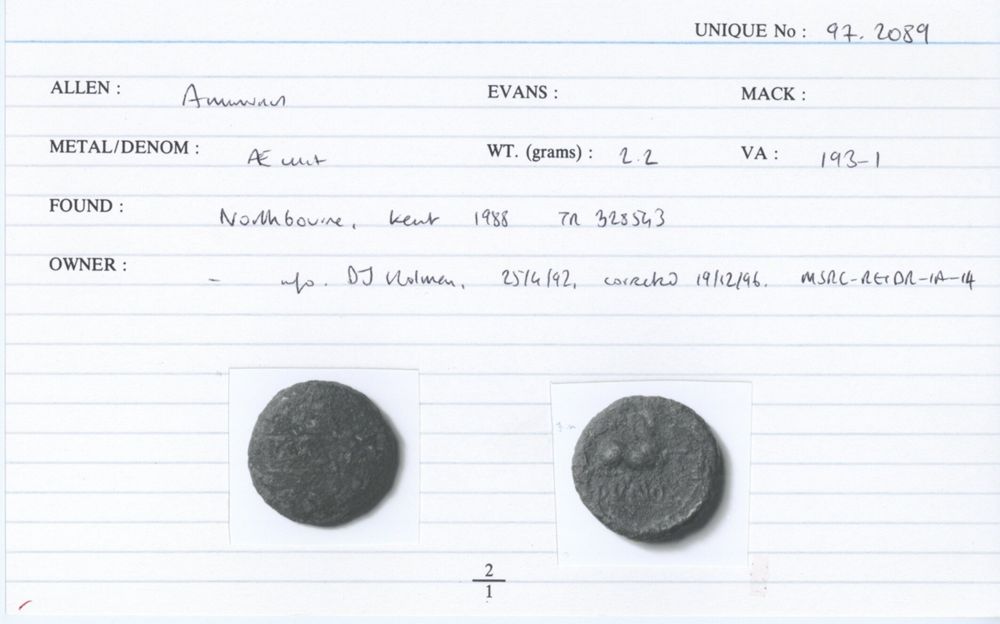 UNIQUE No : 97. 2089
ALLEN : Amminus EVANS : MACK :
METAL/DENOM : Æ unit WT. (grams) : 2.2 VA : 193-1
FOUND : Northbourne, Kent 1988 TR 328543
OWNER : - info. DJ Holman, 25/4/92, corrected 19/12/96. MSRC-RETDR-IA-14
DVNO
2
1